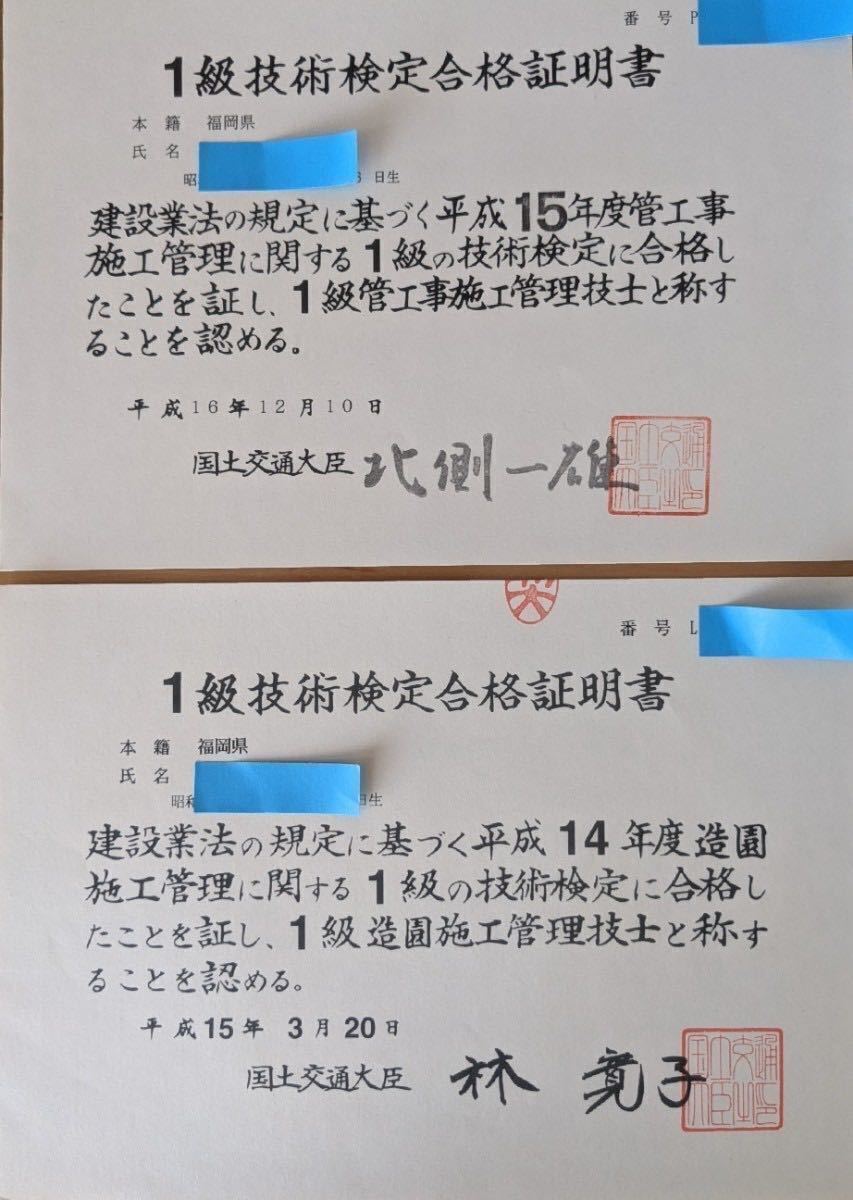 番号 P
1級技術検定合格証明書
本籍 福岡県
氏名
昭 日生
建設業法の規定に基づく平成15年度管工事
施工管理に関する1級の技術検定に合格し
たことを証し、1級管工事施工管理技士と称す
ることを認める。
平成16年12月10日
国土交通大臣 北側一雄
番号 L
1級技術検定合格証明書
本籍 福岡県
氏名
昭和 日生
建設業法の規定に基づく平成14年度造園
施工管理に関する1級の技術検定に合格し
たことを証し、1級造園施工管理技士と称す
ることを認める。
平成15年 3月20日
国土交通大臣 林 寛子